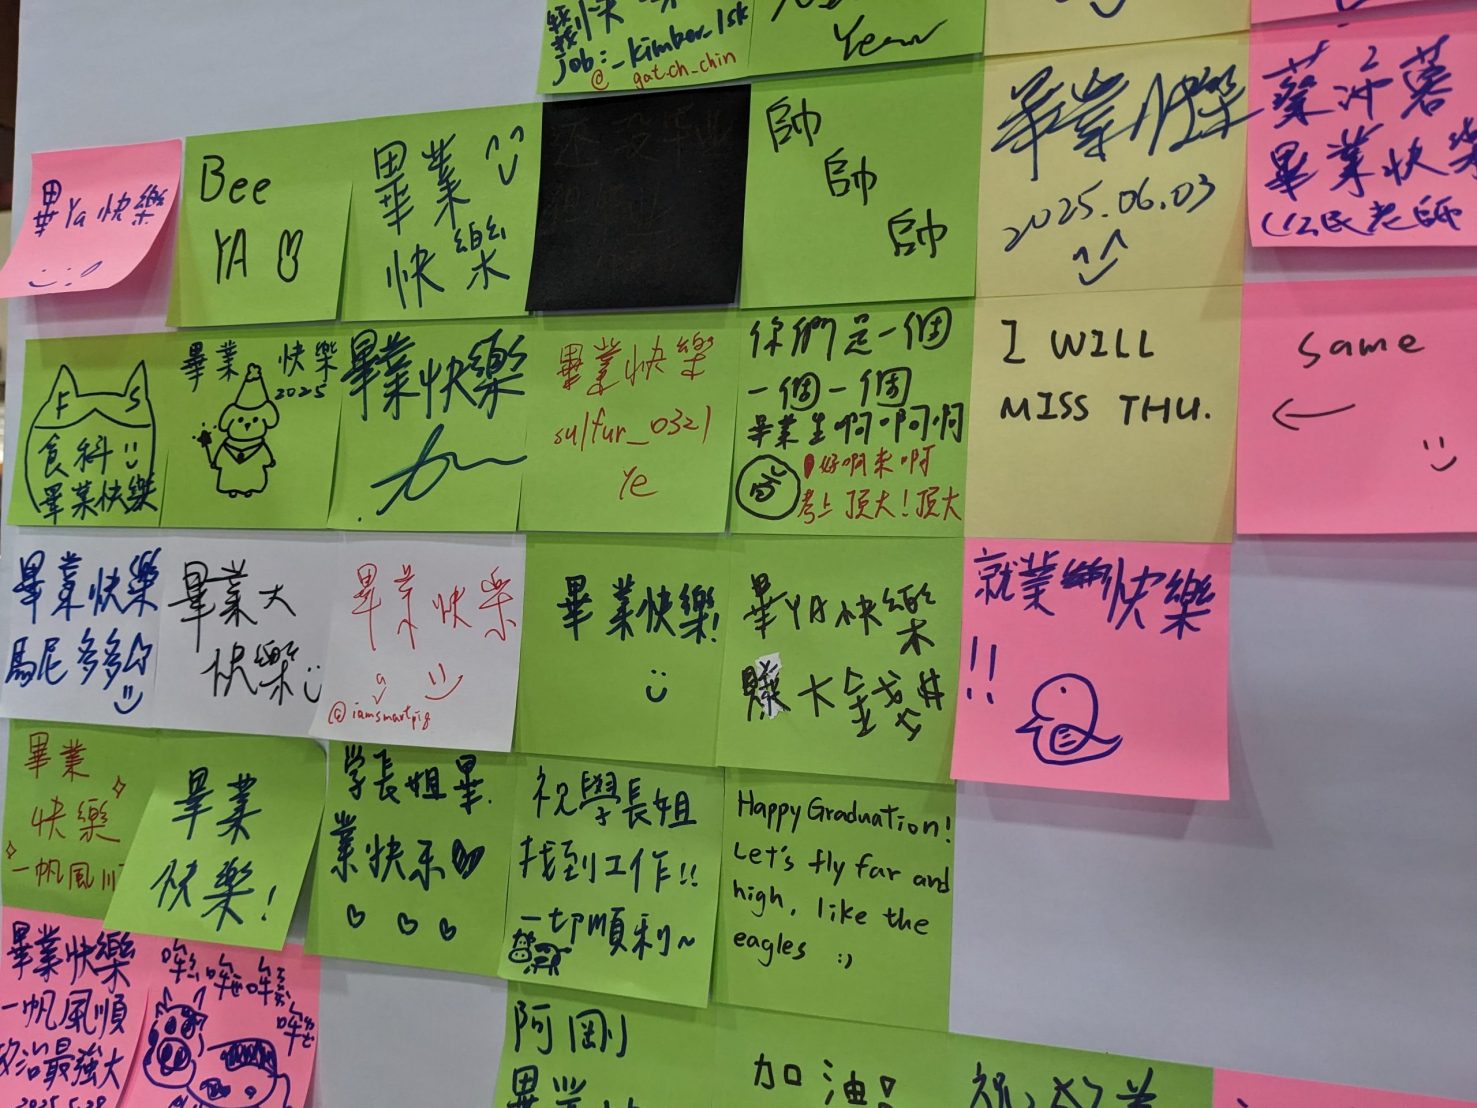 job:_kimber_1sk
@ gatch_chin
Year
畢Ya快樂
Bee
YA
畢業
快樂
还没毕业
帥
帥
帥
畢業快樂
2025.06.03
蔡沖蓉
畢業快樂
公民老師
F S
食科
畢業快樂
畢業 快樂
2025
畢業快樂
畢業快樂
sulfur_0321
Ye
你們是一個
一個一個
畢業生啊啊啊
好啊來啊
考上頂大!頂大
I WILL
MISS THU.
Same
畢業快樂
馬尼多多
畢業大
快樂
畢業快樂
a
@iamsmartpig
畢業快樂!
畢YA快樂
賺大錢錢
就業快樂
!!
畢業
快樂
一帆風順
畢業
快樂!
学長姐畢
業快乐
祝學長姐
找到工作!!
一切順利~
Happy Graduation!
Let's fly far and
high, like the
eagles :)
畢業快樂
一帆風順
政治最強大
2025.5.29
哞哞哞
哞
阿剛
畢業
加油!